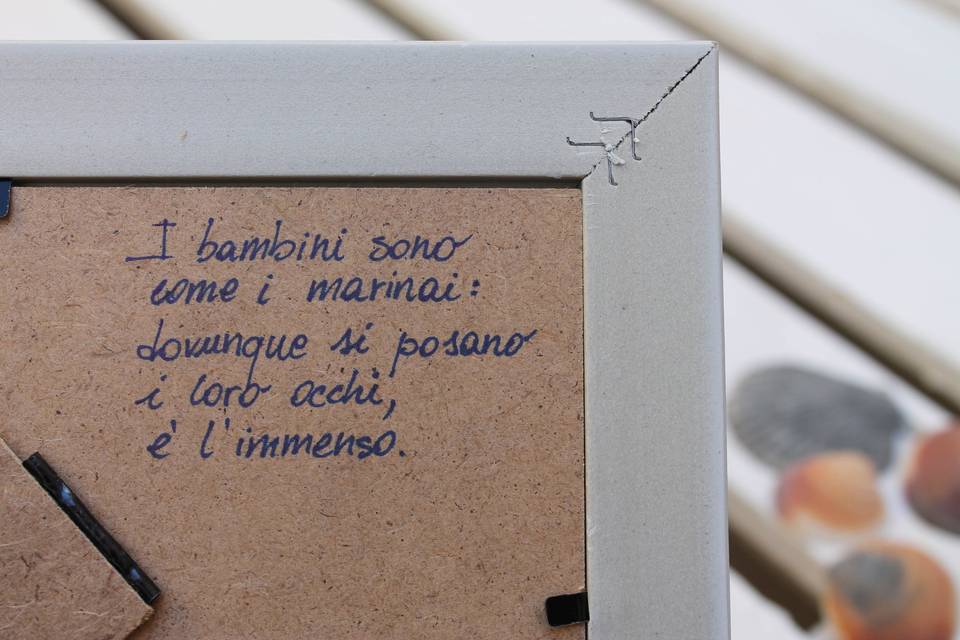 I bambini sono
come i marinai:
dovunque si posano
i loro occhi,
è l'immenso.